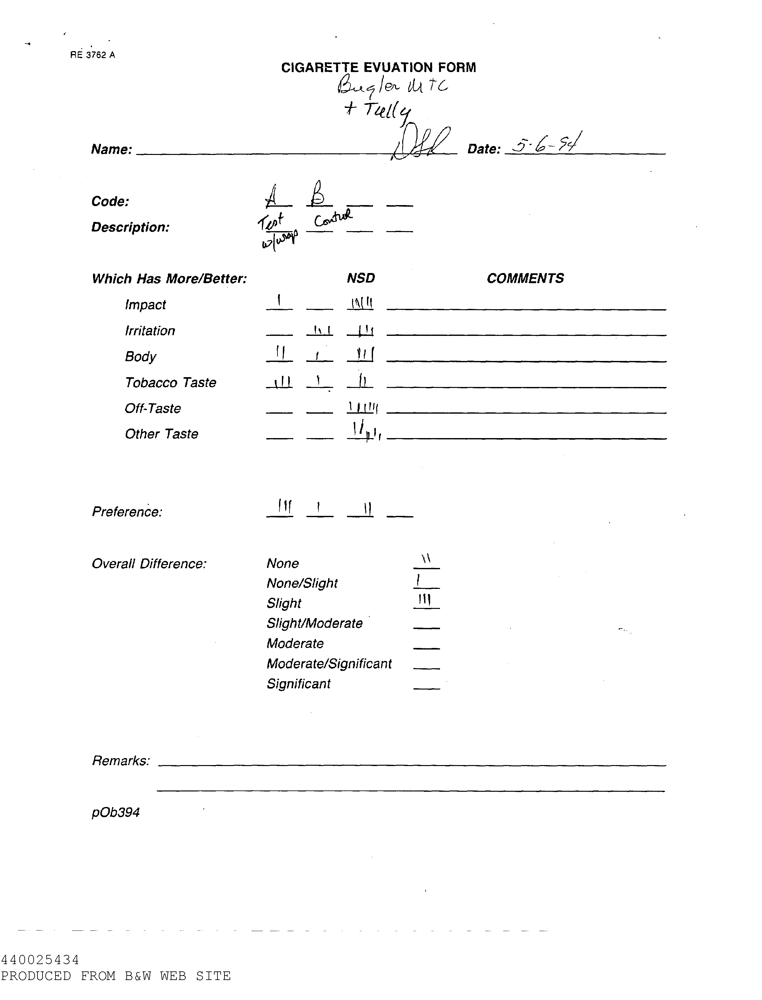 RE 3762 A
CIGARETTE EVUATION FORM
Bugler MTC
+ Tully
Name: Date: 5-6-94
Code: A B
Description: Test Control
w/wrap
Which Has More/Better: NSD COMMENTS
Impact
Irritation
Body
Tobacco Taste
Off-Taste
Other Taste
Preference:
Overall Difference: None
None/Slight
Slight
Slight/Moderate
Moderate
Moderate/Significant
Significant
Remarks:
pOb394
440025434
PRODUCED FROM B&W WEB SITE